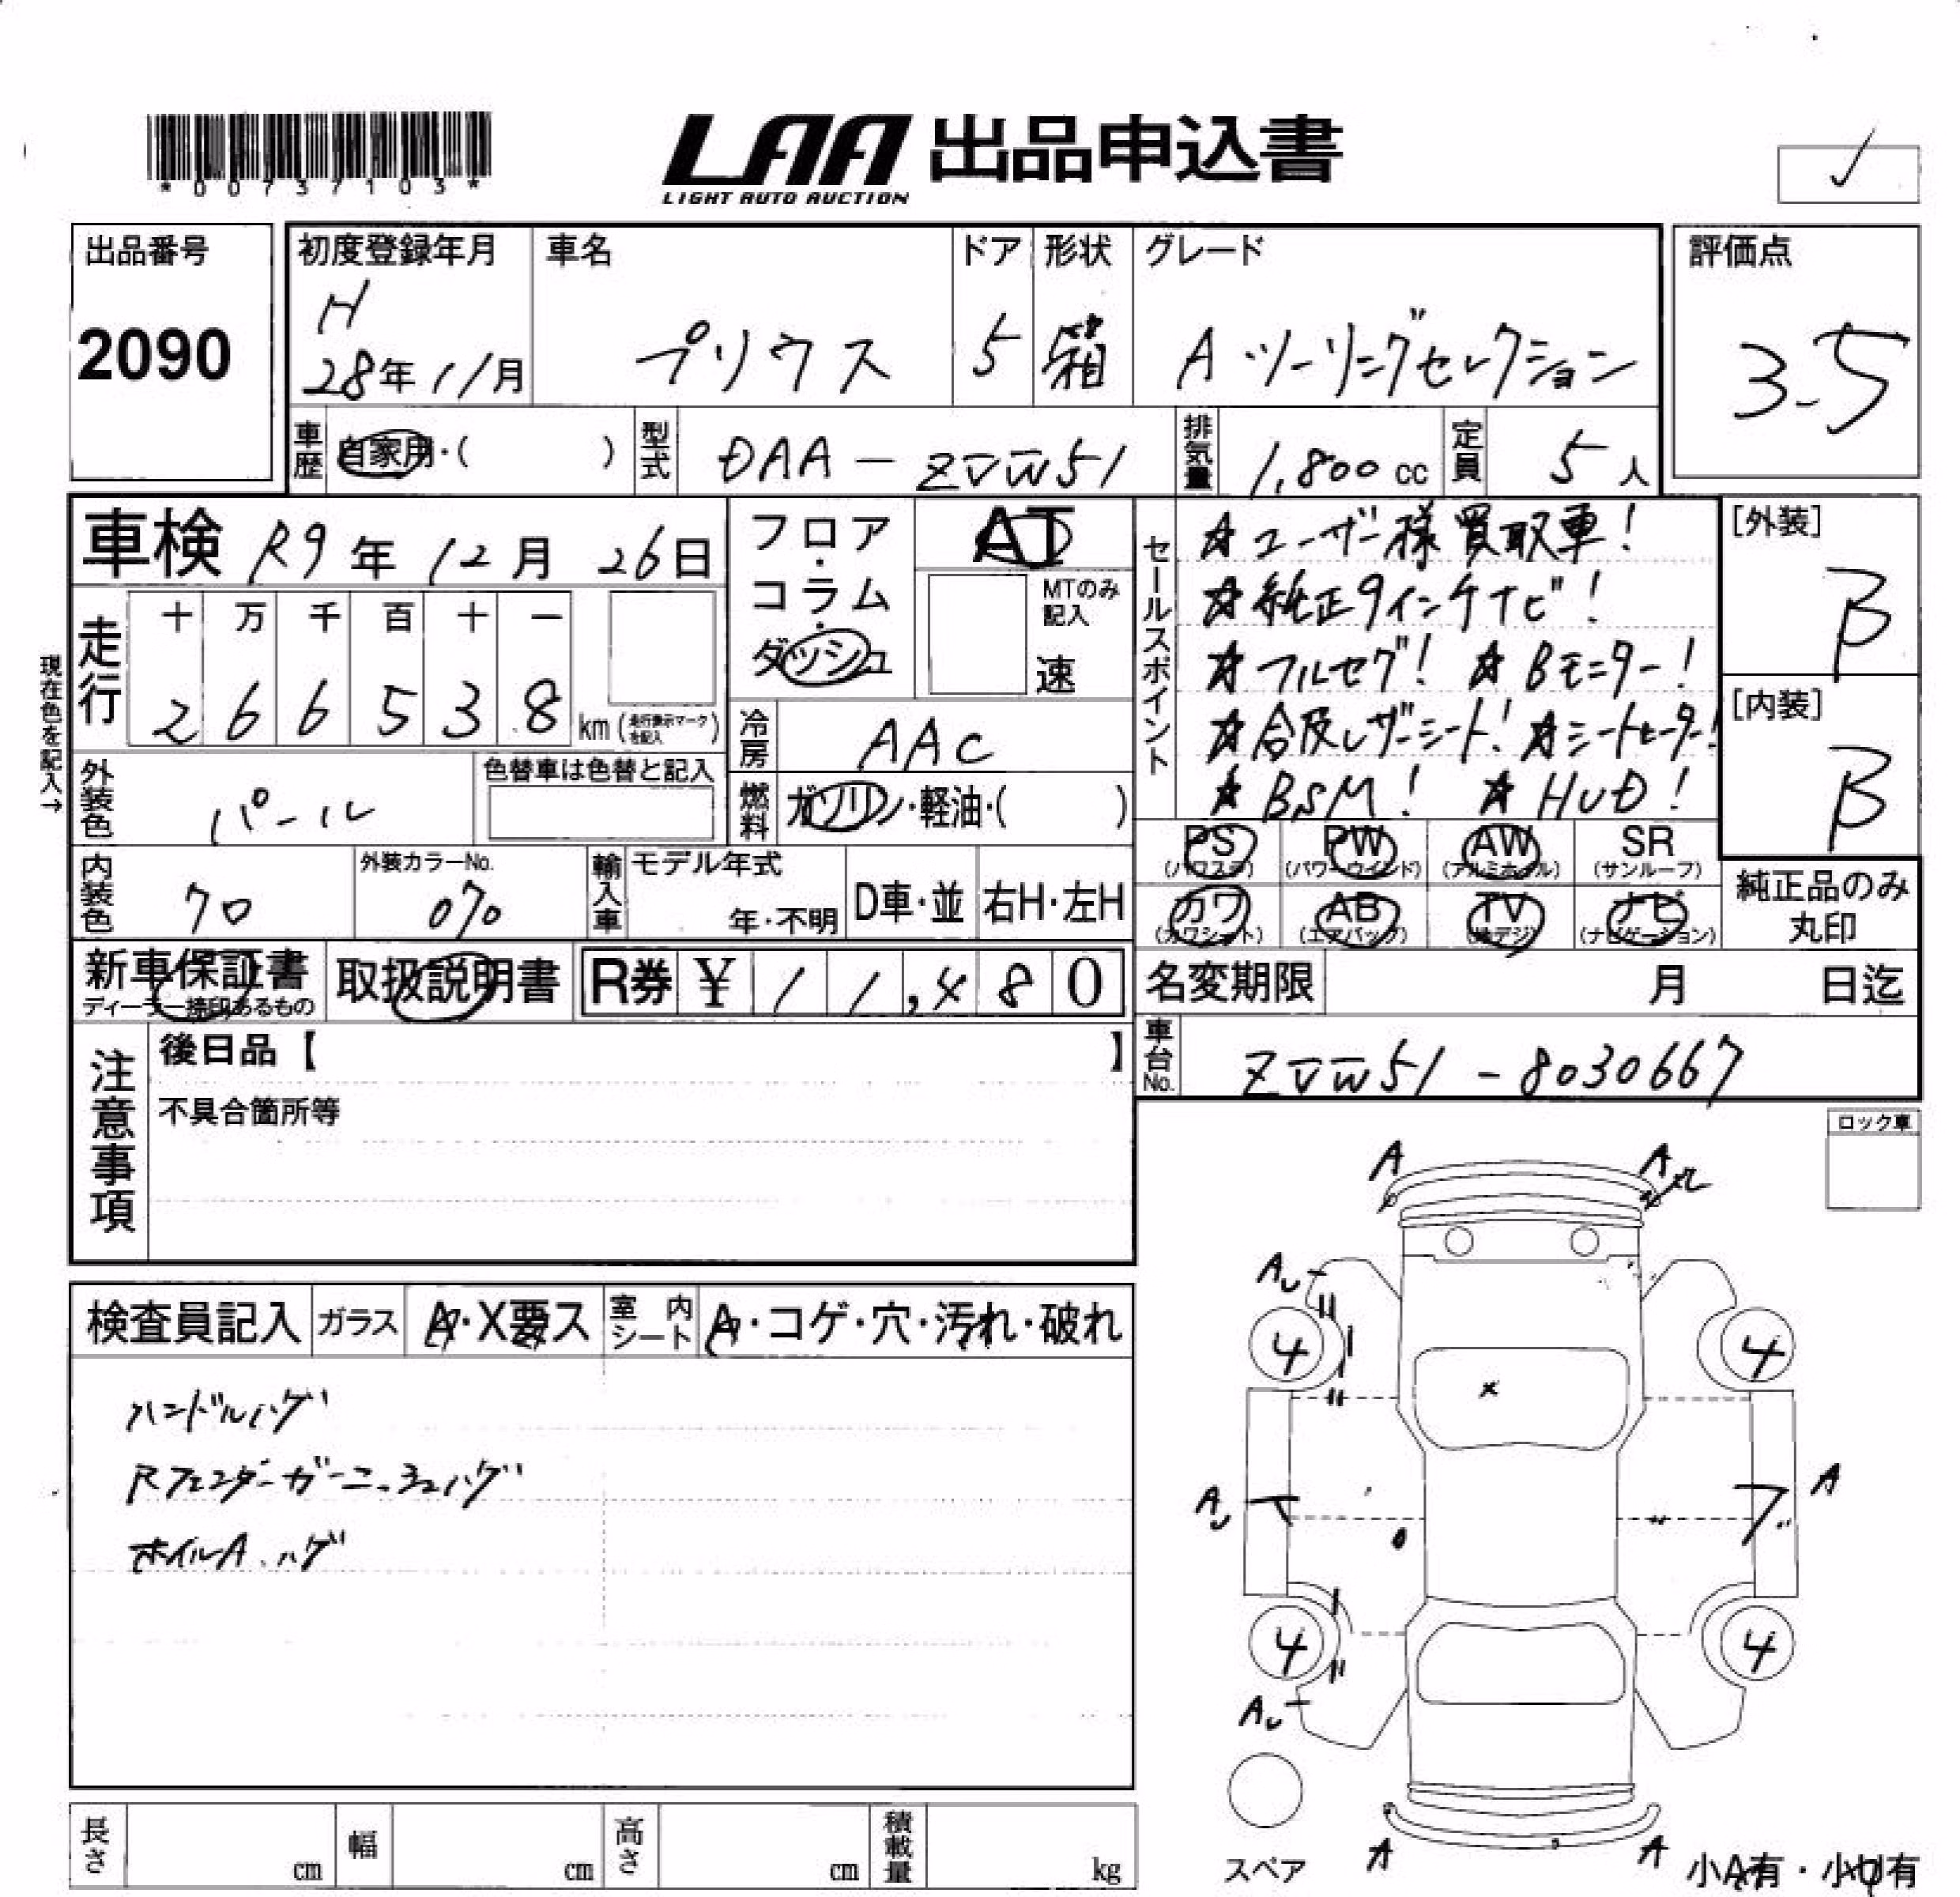 *00737103*
LAA 出品申込書
LIGHT AUTO AUCTION
出品番号
2090
初度登録年月
H
28年11月
車名
プリウス
ドア
5
形状
箱
グレード
A ツーリングセレクション
評価点
3.5
車歴
自家用・( )
型式
DAA-ZVW51
排気量
1,800 cc
定員
5人
車検 R9年 12月 26日
フロア・コラム・ダッシュ
AT
MTのみ記入
速
現在色を記入→
走行
十 万 千 百 十 一
2 6 6 5 3 8 km (走行表示マークを記入)
冷房
AAC
外装色
パール
色替車は色替と記入
燃料
ガソリン・軽油・( )
内装色
クロ
外装カラーNo.
070
輸入車
モデル年式
年・不明
D車・並
右H・左H
セールスポイント
☆ユーザー様買取車!
☆純正9インチナビ!
☆フルセグ! ☆Bモニター!
☆合皮レザーシート! ☆シートヒーター!
☆BSM! ☆HUD!
[外装]
B
[内装]
B
PS (パワステ)
PW (パワーウインド)
AW (アルミホイル)
SR (サンルーフ)
カワ (カワシート)
AB (エアバッグ)
TV (地デジ)
ナビ (ナビゲーション)
純正品のみ丸印
新車保証書
ディーラー捺印あるもの
取扱説明書
R券 ¥ 11,480
名変期限 月 日迄
車台No.
ZVW51-8030667
注意事項
後日品【 】
不具合箇所等
ロック車
検査員記入
ガラス
A・X要ス
室内シート
A・コゲ・穴・汚れ・破れ
ハンドルハゲ
Rフェンダーガーニッシュハゲ
ホイルA、ハゲ
A
A
AU
4
4
X
AU
A
4
4
AU
A
A
スペア
小A有・小U有
長さ cm
幅 cm
高さ cm
積載量 kg